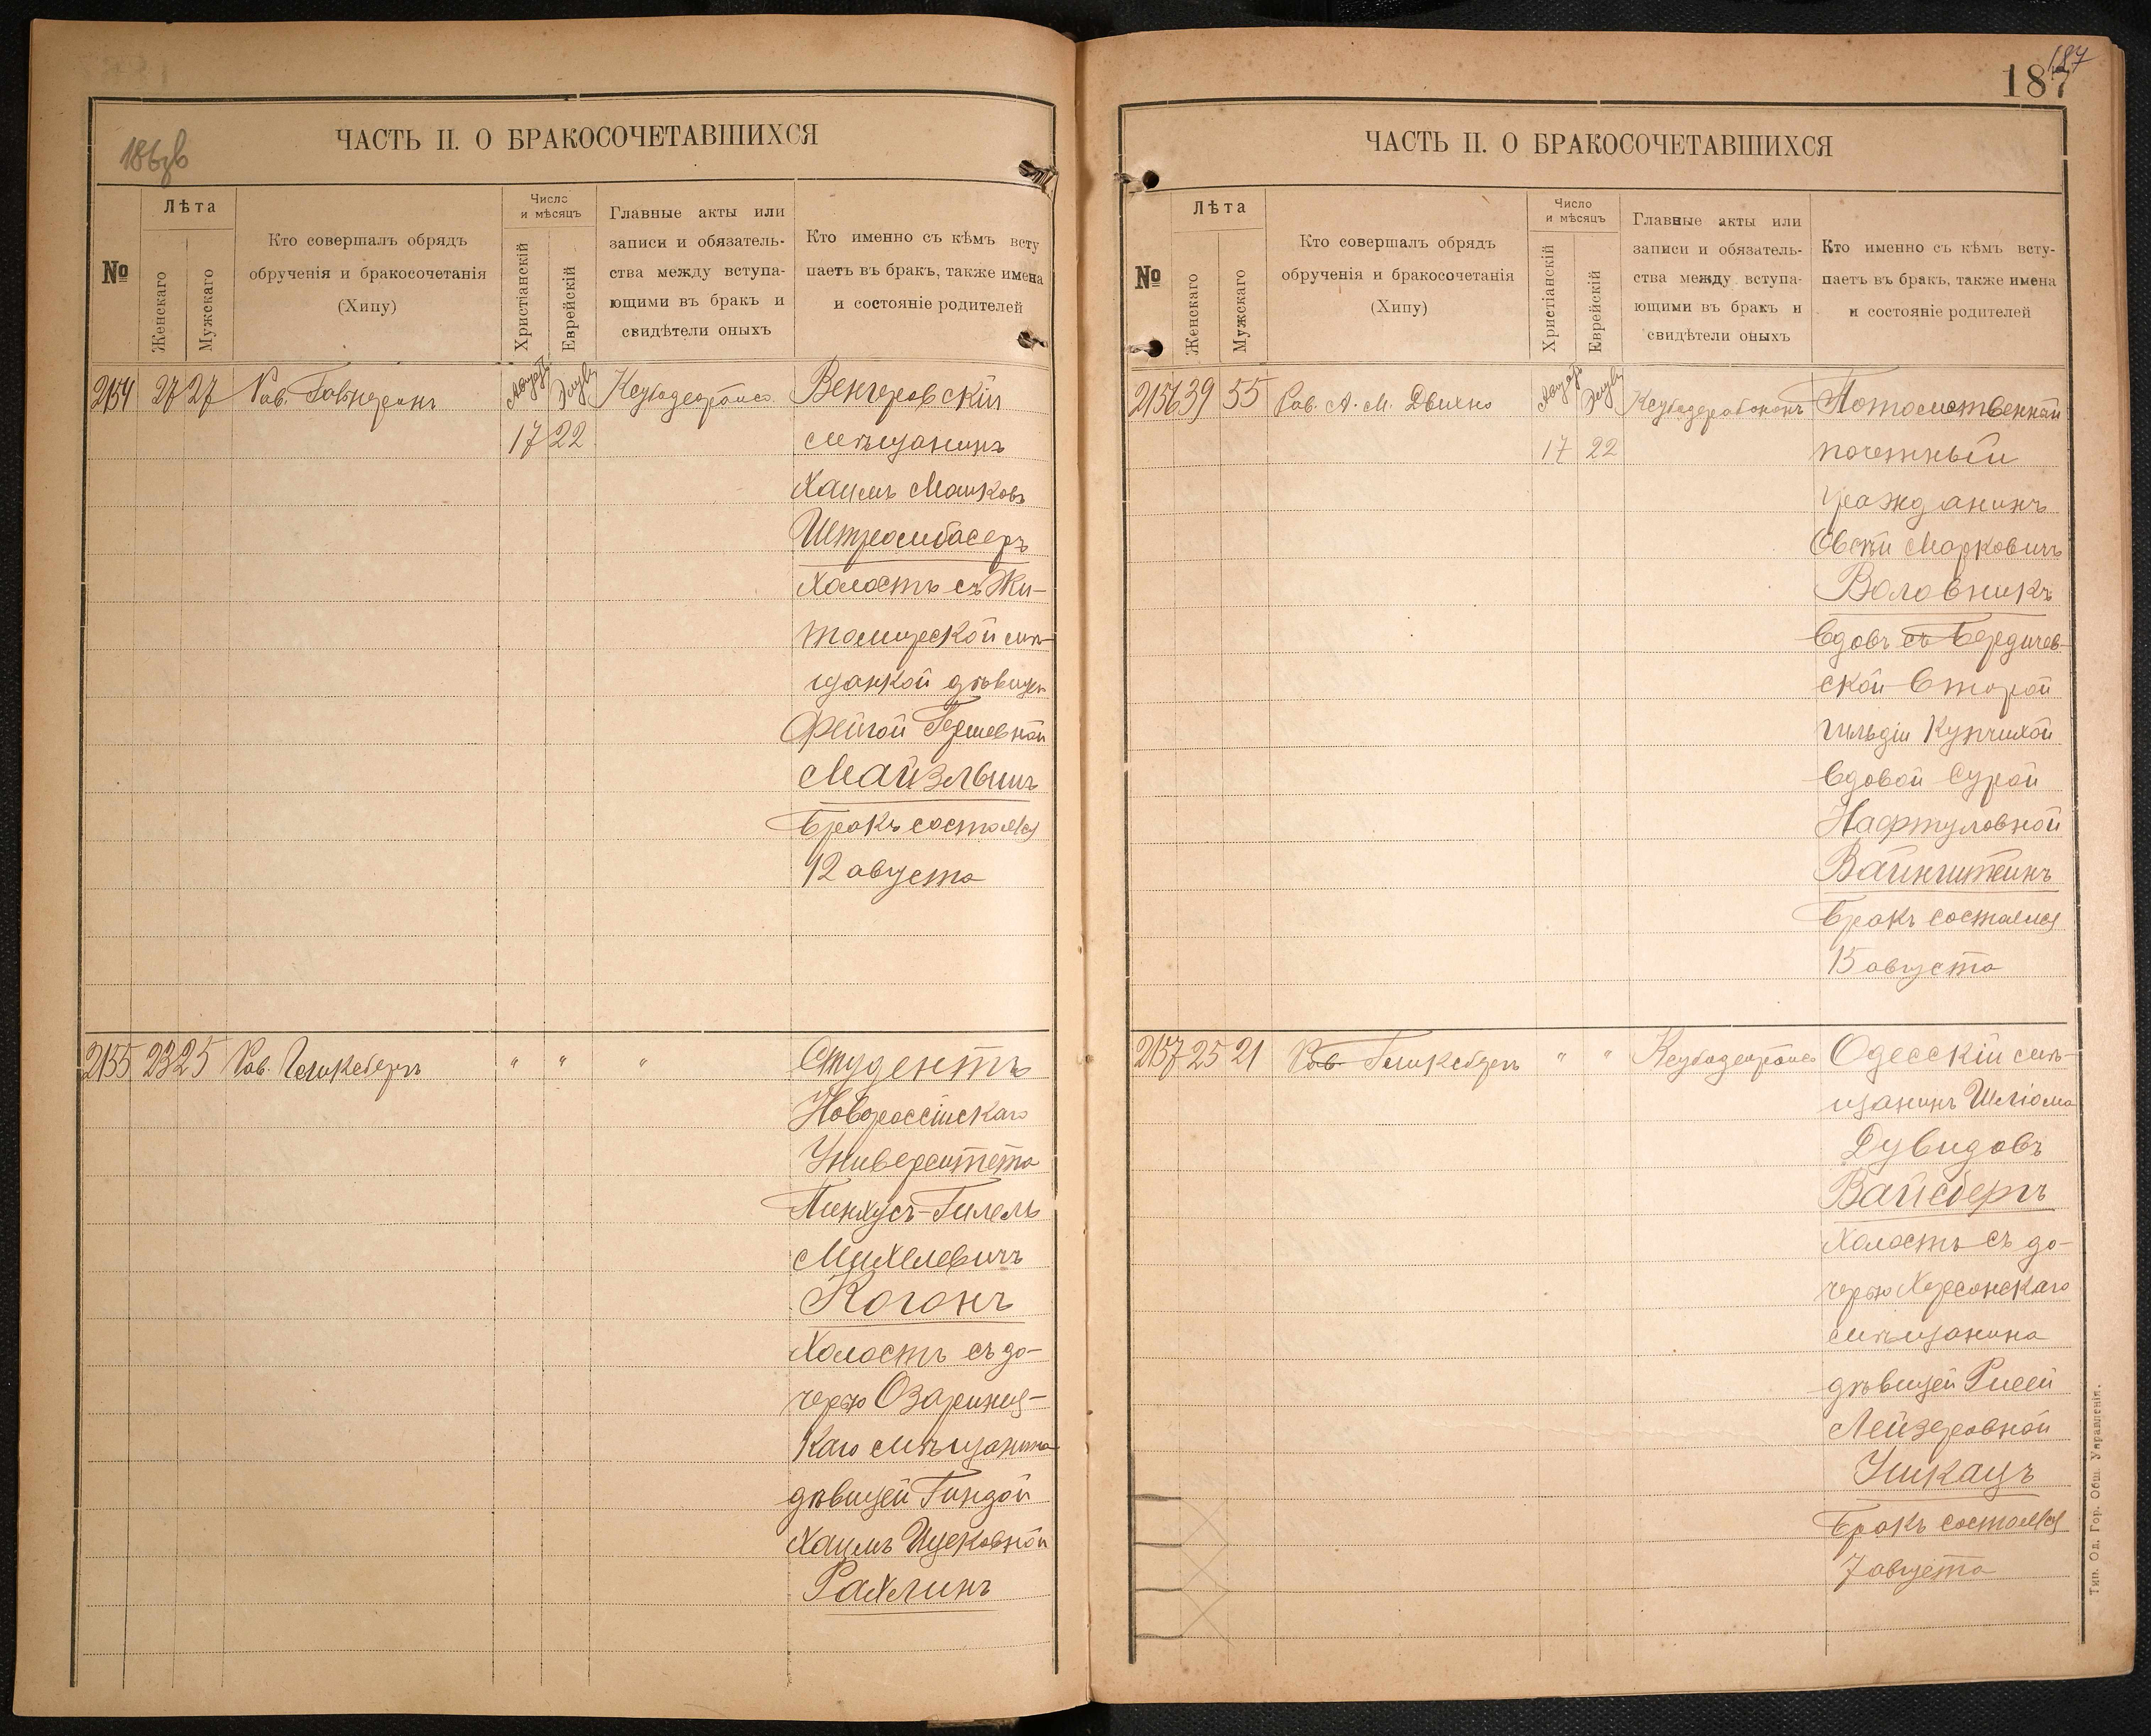 186об
ЧАСТЬ II. О БРАКОСОЧЕТАВШИХСЯ
№
Лѣта
Женскаго
Мужскаго
Кто совершалъ обрядъ
обрученія и бракосочетанія
(Хипу)
Число
и мѣсяцъ
Христіанскій
Еврейскій
Главные акты или
записи и обязатель-
ства между вступа-
ющими въ бракъ и
свидѣтели оныхъ
Кто именно съ кѣмъ всту
паетъ въ бракъ, также имена
и состояніе родителей
2154 27 27 Рав.
Августъ Элулъ
17 22
Венгеровскій
мѣщанинъ
Хаимъ Машковъ
Штромбасеръ
холостъ съ Жи-
томирской мѣ-
щанкой дѣвицей
Фейгой Гершевной
Майзлышъ
Бракъ состоялся
12 августа
2155 23 25 Рав. Гликсбергъ " " "
Студентъ
Новороссійскаго
Университета
Пинхусъ-Гилель
Михелевичъ
Коганъ
холостъ съ до-
черью Озаринец-
каго мѣщанина
дѣвицей Гиндой
Хаимъ Ицковной
Рахлинъ
187
187
ЧАСТЬ II. О БРАКОСОЧЕТАВШИХСЯ
№
Лѣта
Женскаго
Мужскаго
Кто совершалъ обрядъ
обрученія и бракосочетанія
(Хипу)
Число
и мѣсяцъ
Христіанскій
Еврейскій
Главные акты или
записи и обязатель-
ства между вступа-
ющими въ бракъ и
свидѣтели оныхъ
Кто именно съ кѣмъ всту-
паетъ въ бракъ, также имена
и состояніе родителей
2156 39 55 Рав. А. М.
Августъ Элулъ
17 22
Потомственный
почетный
гражданинъ
Овсѣй Марковичъ
Воловникъ
вдовъ съ Бердичев-
ской второй
гильдіи купчихой
вдовой Сурой
Нафтуловной
Вайнштейнъ
Бракъ состоялся
15 августа
2157 25 21 Рав. Гликсбергъ " "
Одесскій мѣ-
щанинъ Шліома
Дувидовъ
Вайсбергъ
холостъ съ до-
черью Херсонскаго
мѣщанина
дѣвицей Рисей
Лейзеровной
Ушкацъ
Бракъ состоялся
7 августа
Тип. Од. Гор. Общ. Управленія.